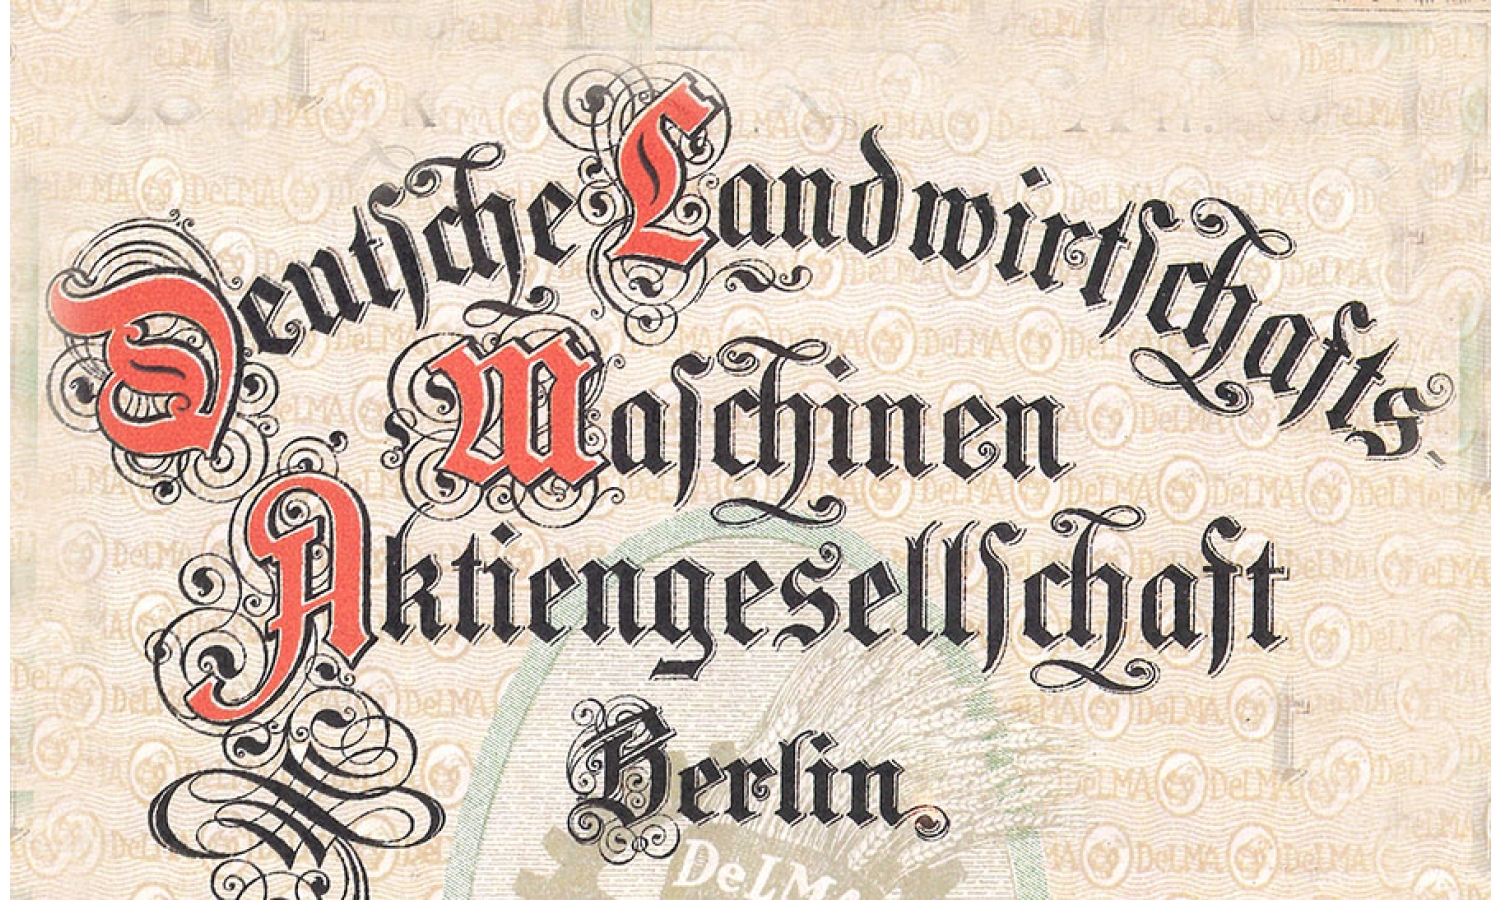 Deutsche Landwirtschafts-
Maschinen
Aktiengesellschaft
Berlin.
DeLMA